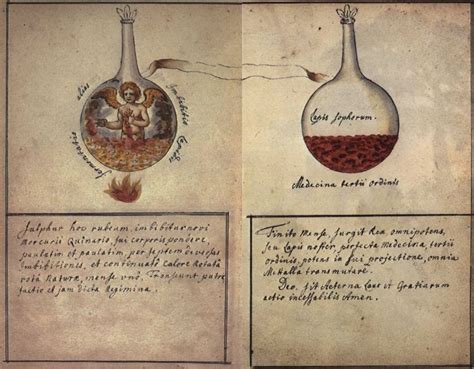 alias
Imbibitio
Lapidis
fermentatio
Sulphur hoc rubeum, imbibitur novi
Mercurii Quinario, sui corporis pondere,
paulatim et paulatim, per septem diversas
Imbibitionis, et continuato Calore Rotata
rota Natura, mense uno, Transeunt putre
factio et jam dicta Regimina.
Lapis Sophorum.
Medecina tertii ordinis
Finito Mense, surgit Rex omnipotens,
seu Lapis noster, perfecta Medecina, tertii
ordinis, potens in sui projectione, omnia
Metalla transmutare.
Deo, sit Aeterna Laus et Gratiarum
actio incessabilis Amen.